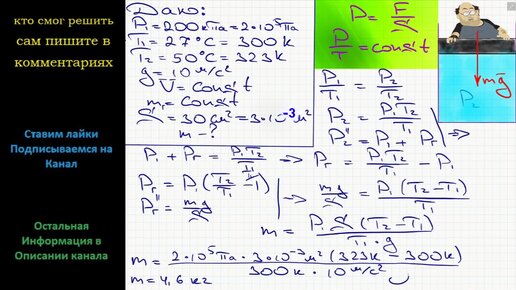 кто смог решить
сам пишите в
комментариях
Ставим лайки
Подписываемся на
Канал
Остальная
Информация в
Описании канала
Дано:
P₁ = 200 кПа = 2·10⁵ Па
T₁ = 27°C = 300 K
T₂ = 50°C = 323 K
g = 10 м/с²
V = const
m₁ = const
S = 30 см² = 3·10⁻³ м²
m - ?
P = F/S
P/T = const
mg
P₂
P₁/T₁ = P₂/T₂
P₂ = P₁T₂/T₁
P₂" = P₁ + Pг =>
P₁ + Pг = P₁T₂/T₁ => Pг = P₁T₂/T₁ - P₁
Pг = P₁(T₂/T₁ - 1)
Pг" = mg/S => mg/S = P₁(T₂-T₁)/T₁
m = P₁S(T₂-T₁)/T₁·g
m = 2·10⁵ Па · 3·10⁻³ м² (323 K - 300 K)/300 K · 10 м/с²
m = 4,6 кг